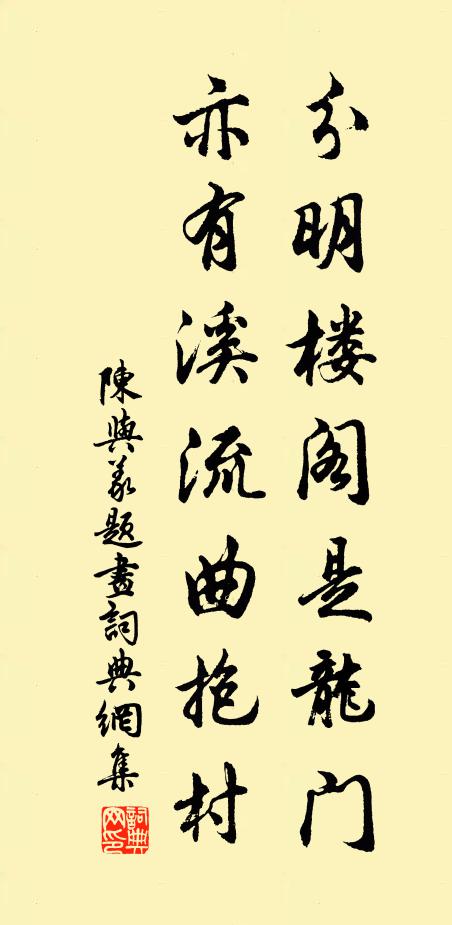 分明楼阁是龍门
亦有溪流曲抱村
陳與義題畫詞典網集
詞典網印